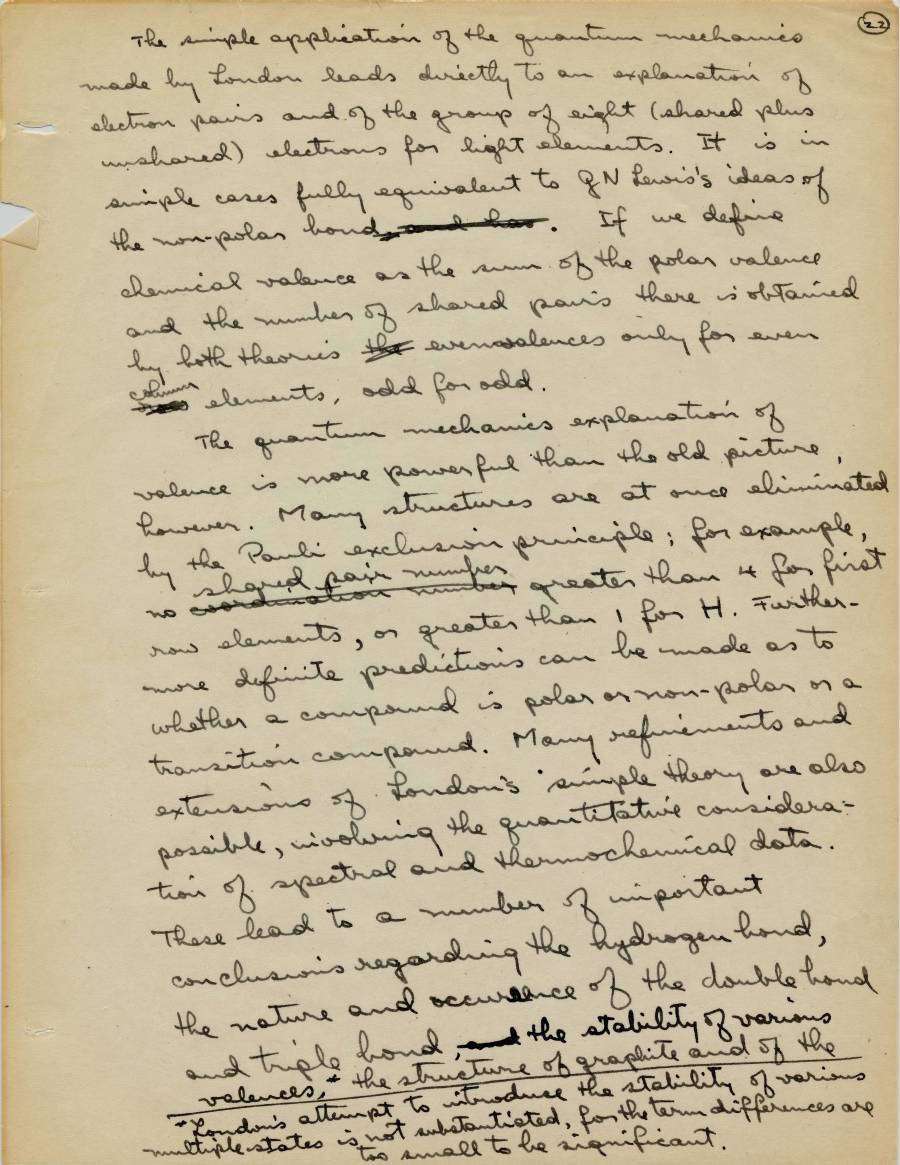 22
The simple application of the quantum mechanics
made by London leads directly to an explanation of
electron pairs and of the group of eight (shared plus
unshared) electrons for light elements. It is in
simple cases fully equivalent to G N Lewis's ideas of
the non-polar bond, and has. If we define
chemical valence as the sum of the polar valence
and the number of shared pairs there is obtained
by both theories the even valences only for even
column
elements, odd for odd.
The quantum mechanics explanation of
valence is more powerful than the old picture,
however. Many structures are at once eliminated
by the Pauli exclusion principle; for example,
shared pair number
no coordination number greater than 4 for first
row elements, or greater than 1 for H. Further-
more definite predictions can be made as to
whether a compound is polar or non-polar or a
transition compound. Many refinements and
extensions of London's simple theory are also
possible, involving the quantitative considera-
tion of spectral and thermochemical data.
These lead to a number of important
conclusions regarding the hydrogen bond,
the nature and occurence of the double bond
and triple bond, and the stability of various
valences,* the structure of graphite and of the
*London's attempt to introduce the stability of various
multiple states is not substantiated, for the term differences are
too small to be significant.